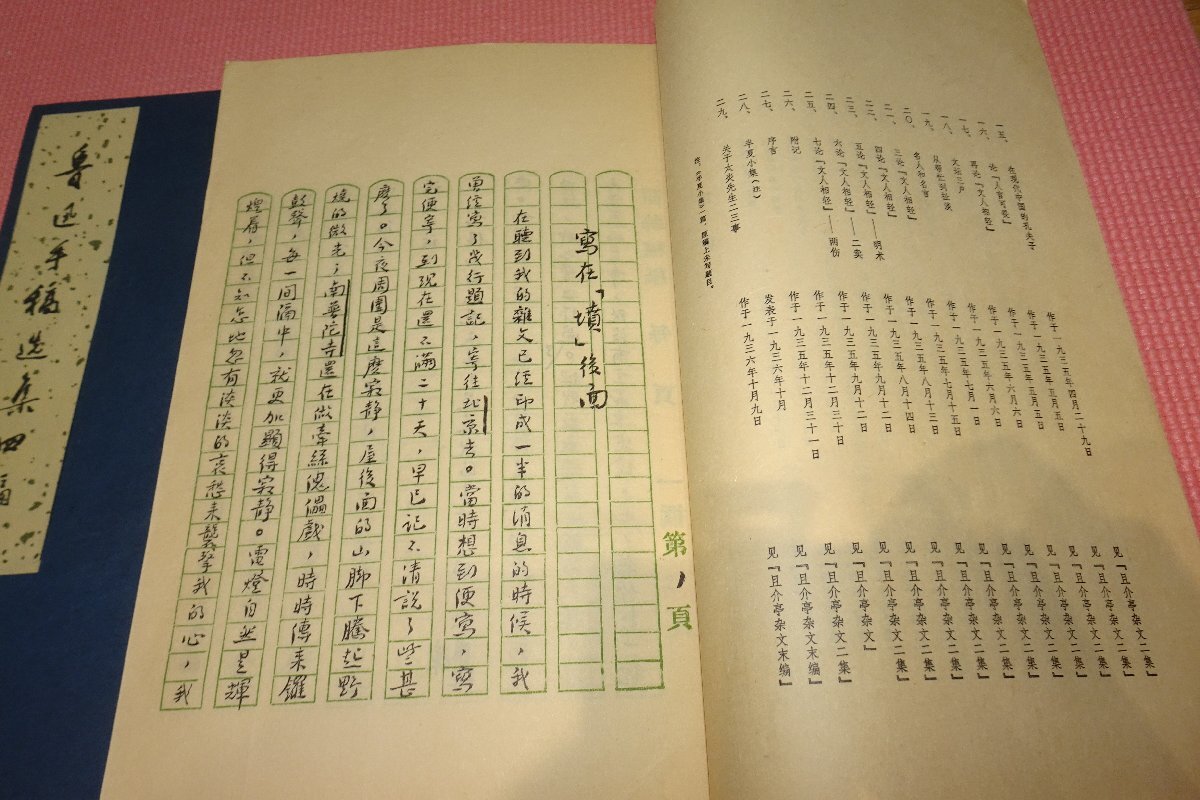 一五、 在现代中国的孔夫子 作于一九三五年四月二十九日 见『且介亭杂文二集』
一六、 论「人言可畏」 作于一九三五年五月五日 见『且介亭杂文二集』
一七、 再论「文人相轻」 作于一九三五年五月五日 见『且介亭杂文二集』
一八、 文坛三户 作于一九三五年六月六日 见『且介亭杂文二集』
一九、 从帮忙到扯淡 作于一九三五年六月六日 见『且介亭杂文二集』
二〇、 名人和名言 作于一九三五年七月一日 见『且介亭杂文二集』
二一、 三论「文人相轻」 作于一九三五年七月十五日 见『且介亭杂文二集』
二二、 四论「文人相轻」 作于一九三五年八月十三日 见『且介亭杂文二集』
二三、 五论「文人相轻」——明术 作于一九三五年八月十四日 见『且介亭杂文二集』
二四、 六论「文人相轻」——二卖 作于一九三五年九月十二日 见『且介亭杂文二集』
二五、 七论「文人相轻」——两伤 作于一九三五年九月十二日 见『且介亭杂文二集』
二六、 附记 作于一九三五年十二月三十日 见『且介亭杂文』
二七、 序言 作于一九三五年十二月三十一日 见『且介亭杂文二集』
二八、 半夏小集（注） 发表于一九三六年十月 见『且介亭杂文末编』
二九、 关于太炎先生二三事 作于一九三六年十月九日 见『且介亭杂文末编』
注，《半夏小集》一篇，原稿上未写题目。
第1頁
寫在「墳」後面
在聽到我的雜文已经印成一半的消息的時候，我
曾经寫了幾行題記，寄往北京去。當時想到便寫，寫
完便寄，到現在還不滿二十天，早已記不清說了些甚
麽了。今夜周圍是這麽寂静，屋後面的山脚下騰起野
燒的微光；南普陀寺還在做牽絲傀儡戲，時時傳来鑼
鼓聲，每一間隔中，就更加顯得寂静。電燈自然是輝
煌着，但不知怎地忽有淡淡的哀愁来襲擊我的心，我
鲁迅手稿选集四编